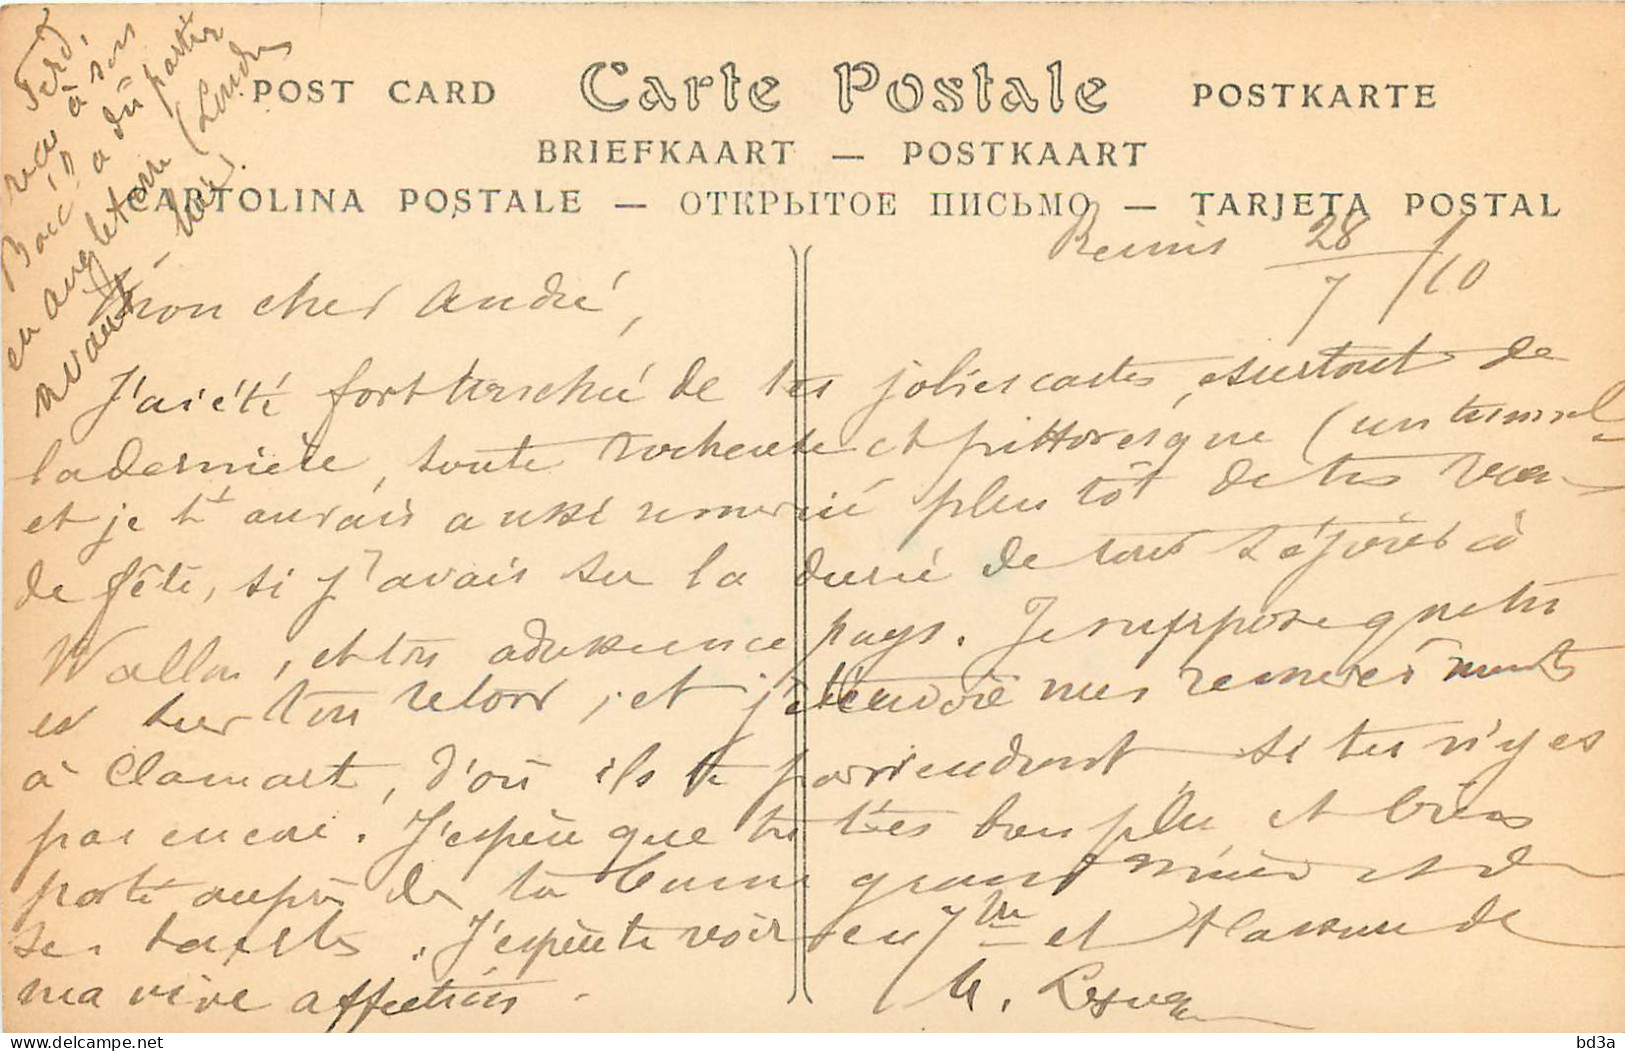 POST CARD Carte Postale POSTKARTE
BRIEFKAART — POSTKAART
CARTOLINA POSTALE — ОТКРЫТОЕ ПИСЬМО — TARJETA POSTAL
Reims 28/7/10
Mon cher André,
J'ai été fort touché de tes jolies cartes, surtout de
la dernière, toute et pittoresque (un tunnel
et je t'aurais aussi remercié plus tôt de tes
de fête, si j'avais su la durée de ton séjour à
Wallon, et ton pays. Je suppose que tu
es sur ton retour, et je t'envoie mes remerciements
à Clamart, d'où ils te parviendront si tu n'y es
pas encore. J'espère que tu t'es bien plu et bien
porté auprès de ta bonne grand'mère et de
ses J'espère te voir en 7bre et t'assure de
ma vive affection.
Ferd.
reçu à son
Bacc; il a dû partir
en angleterre (Londres
avant hier.
bd3a